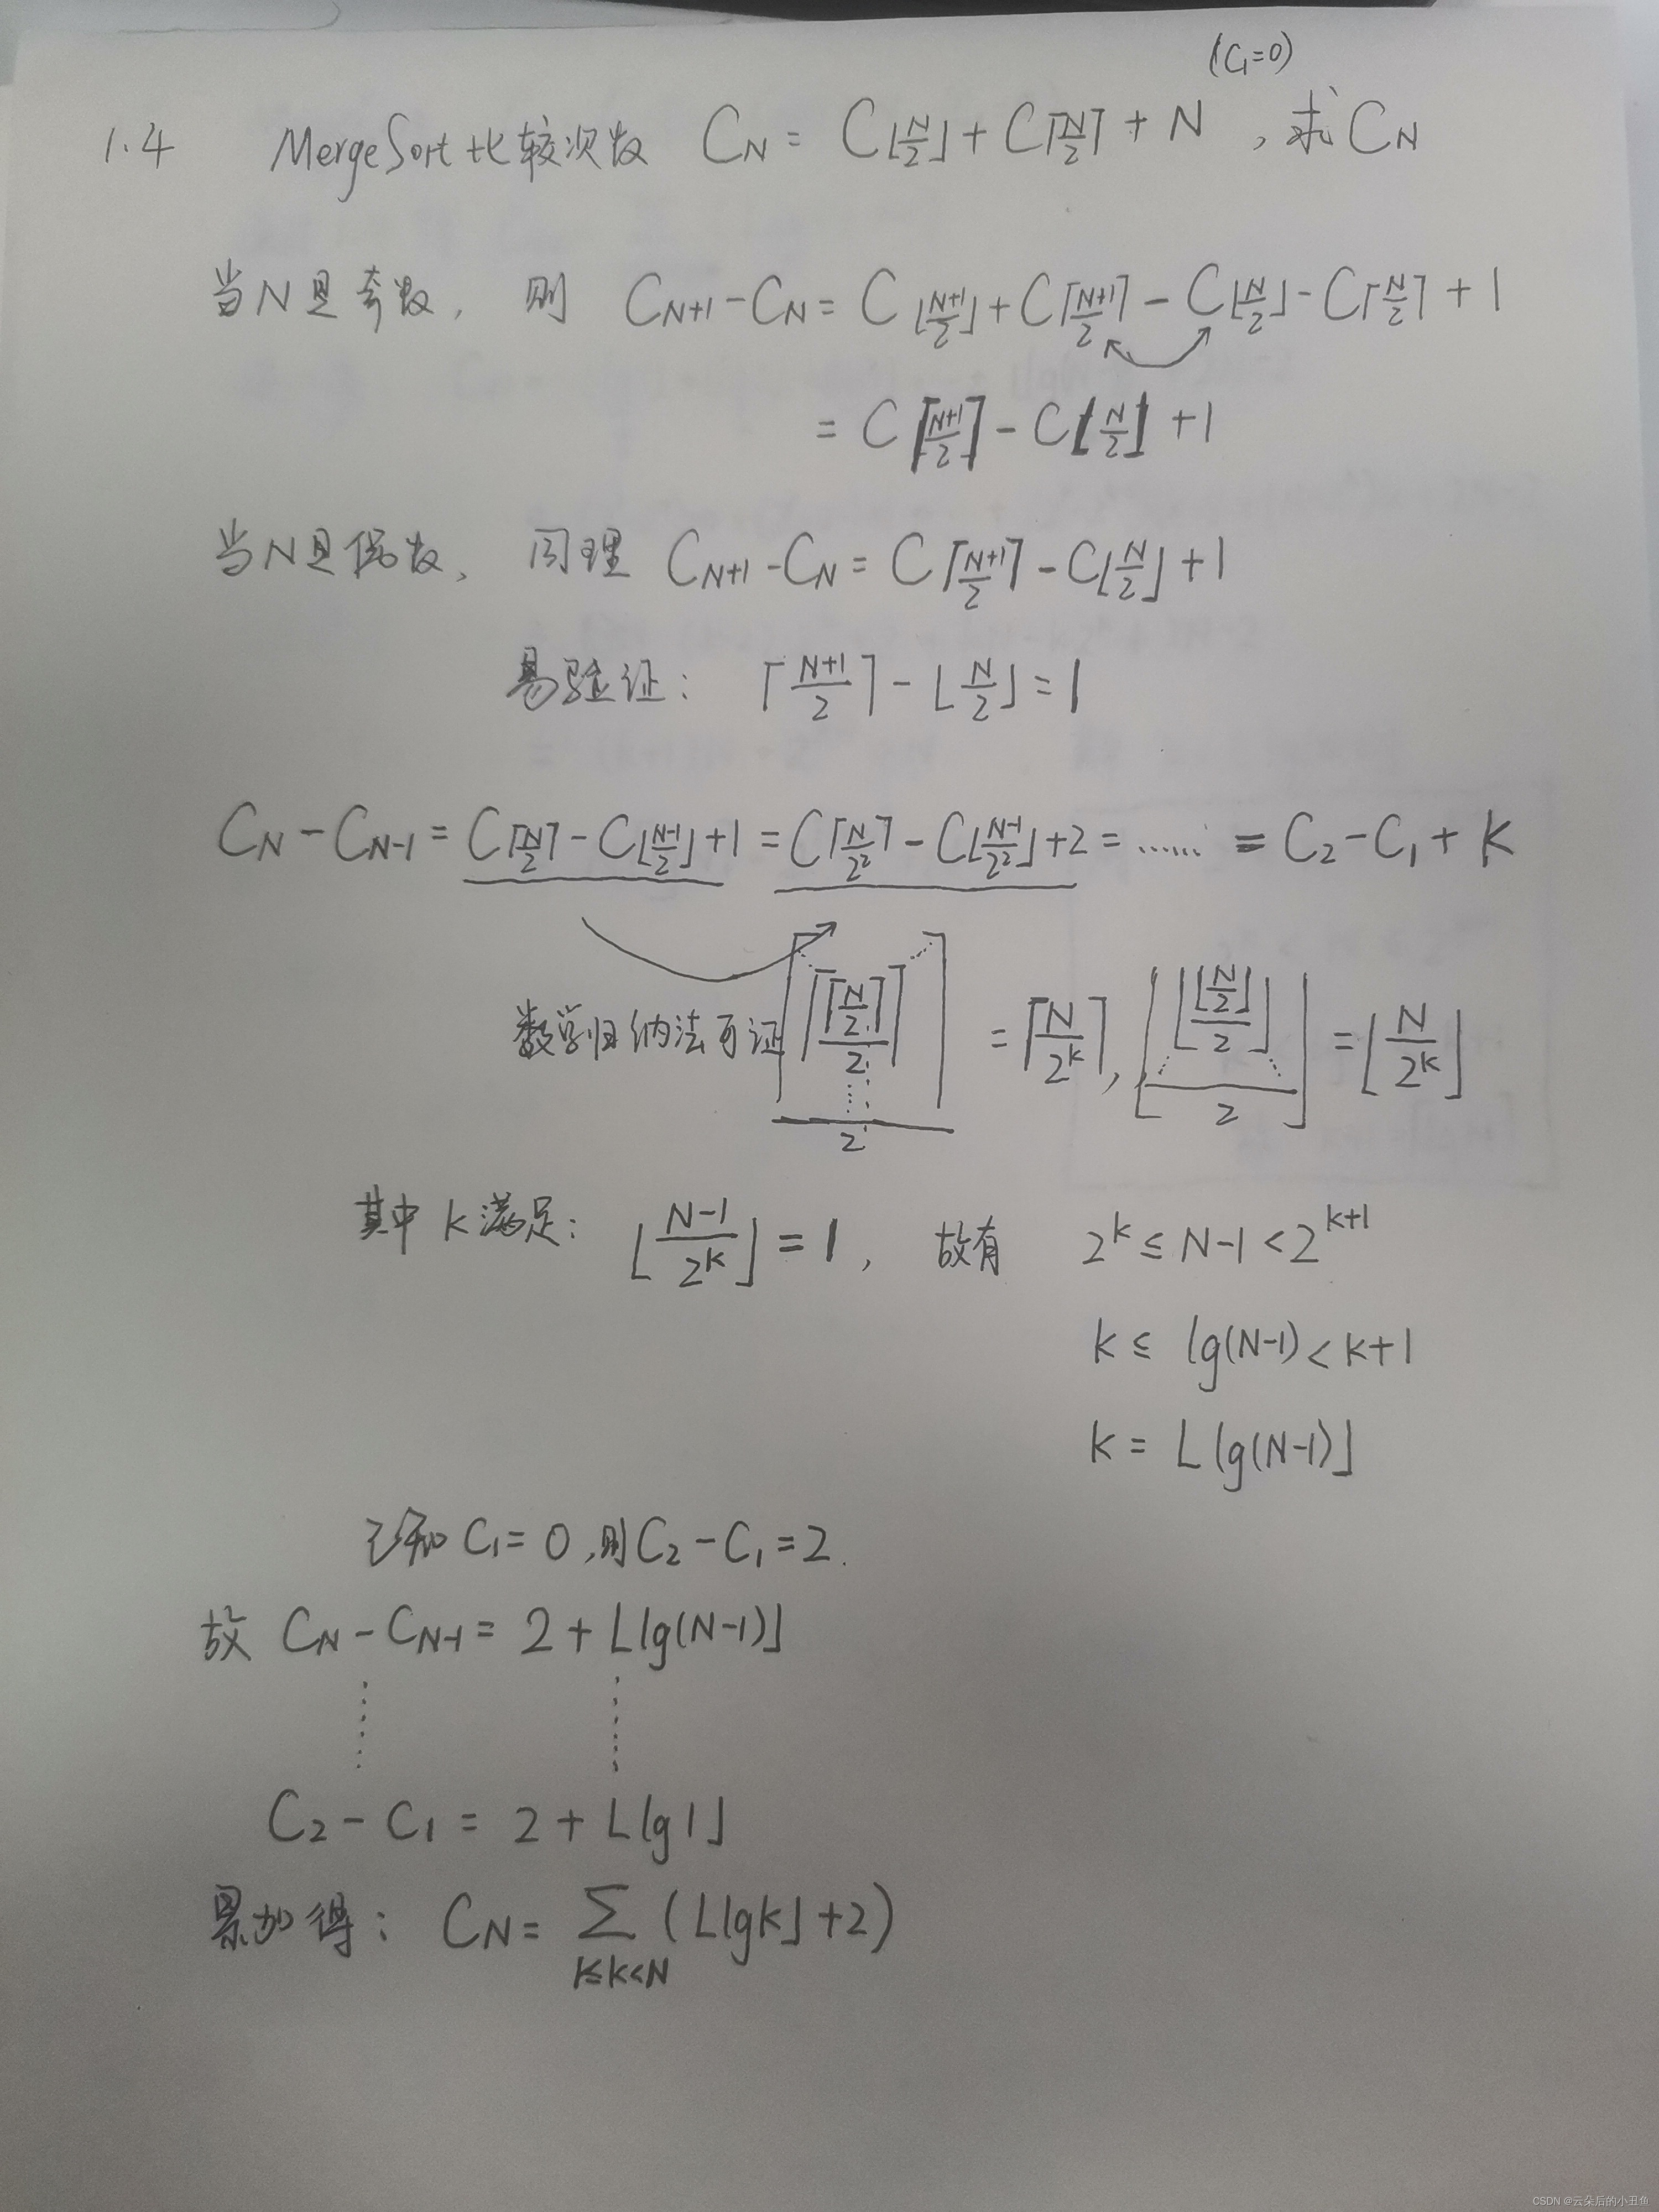 (C₁=0)
1.4 MergeSort比较次数 C_N = C_⌊N/2⌋ + C_⌈N/2⌉ + N , 求C_N
当N是奇数, 则 C_{N+1} - C_N = C_⌊(N+1)/2⌋ + C_⌈(N+1)/2⌉ - C_⌊N/2⌋ - C_⌈N/2⌉ + 1
= C_⌈(N+1)/2⌉ - C_⌊N/2⌋ + 1
当N是偶数, 同理 C_{N+1} - C_N = C_⌈(N+1)/2⌉ - C_⌊N/2⌋ + 1
易验证: ⌈(N+1)/2⌉ - ⌊N/2⌋ = 1
C_N - C_{N-1} = C_⌈N/2⌉ - C_⌊(N-1)/2⌋ + 1 = C_⌈N/2²⌉ - C_⌊(N-1)/2²⌋ + 2 = …… = C₂ - C₁ + k
数学归纳法可证 ⌈⌈⌈N/2⌉/2⌉…/2⌉ = ⌈N/2^k⌉, ⌊⌊⌊N/2⌋/2⌋…/2⌋ = ⌊N/2^k⌋
其中k满足: ⌊(N-1)/2^k⌋ = 1, 故有 2^k ≤ N-1 < 2^{k+1}
k ≤ lg(N-1) < k+1
k = ⌊lg(N-1)⌋
已知 C₁ = 0 ,则C₂ - C₁ = 2.
故 C_N - C_{N-1} = 2 + ⌊lg(N-1)⌋
C₂ - C₁ = 2 + ⌊lg1⌋
累加得: C_N = Σ_{1≤k<N} (⌊lgk⌋ + 2)
CSDN @云朵后的小丑鱼